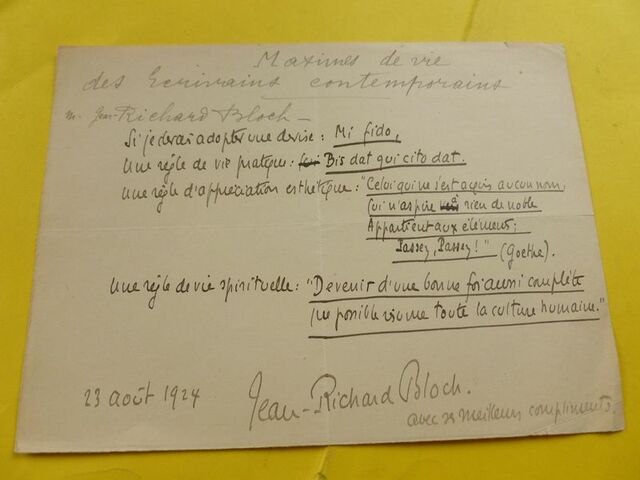 Maximes de vie
des Ecrivains contemporains
M. Jean Richard Bloch —
Si je devais adopter une devise : Mi fido,
Une règle de vie pratique : Bis dat qui cito dat.
Une règle d'appréciation esthétique : "Celui qui ne s'est acquis aucun nom,
Qui n'aspire à rien de noble
Appartient aux éléments ;
Passez, Passez ! " (Goethe).
Une règle de vie spirituelle : "Devenir d'une bonne foi aussi complète
que possible vis-à-vis toute la culture humaine."
23 août 1924
Jean-Richard Bloch.
avec ses meilleurs compliments.